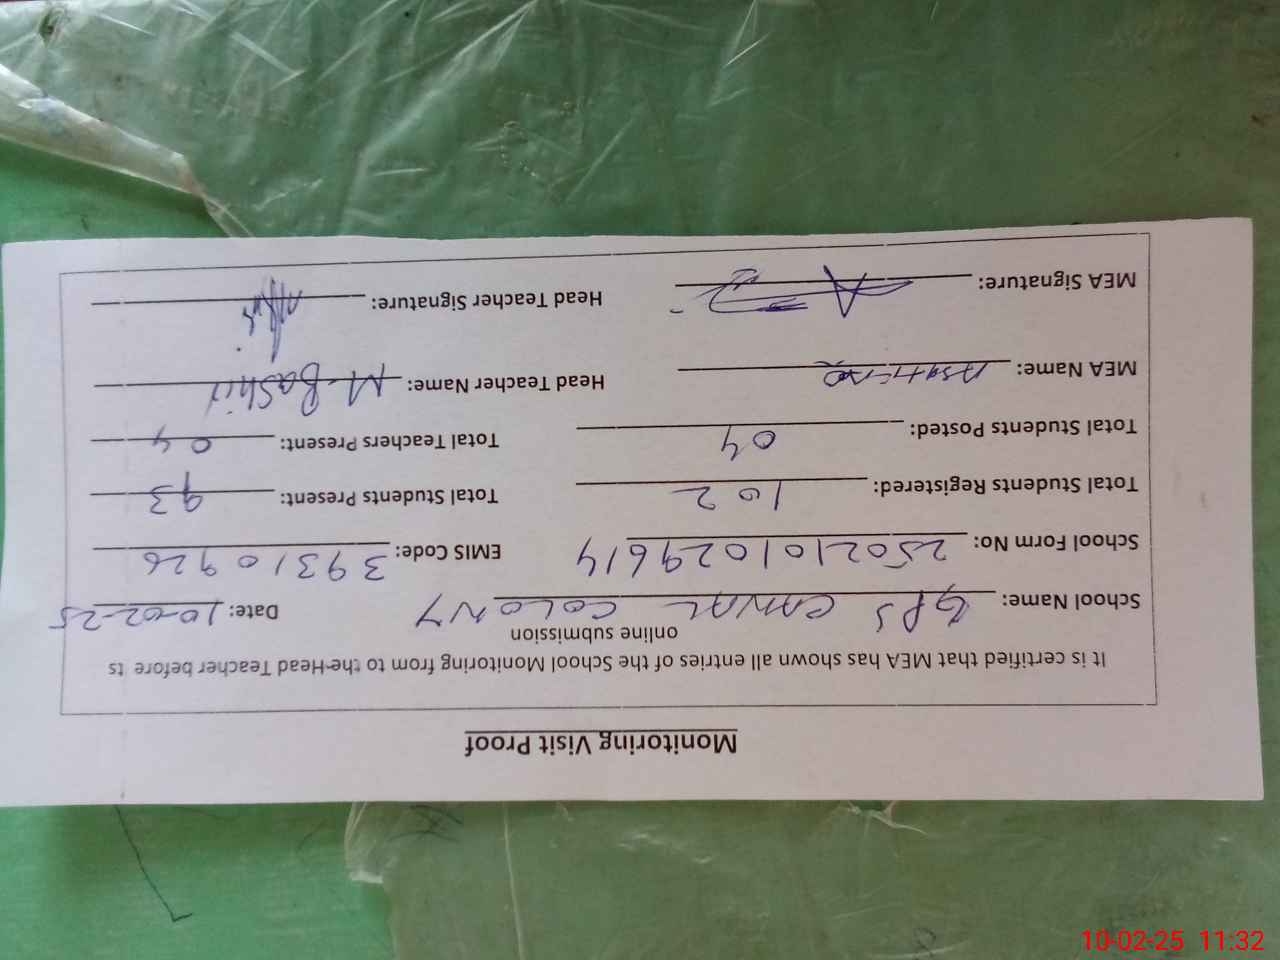 Monitoring Visit Proof
It is certified that MEA has shown all entries of the School Monitoring from to the Head Teacher before its
online submission
School Name: GPS CANAL COLONY Date: 10-02-25
School Form No: 2502101029614 EMIS Code: 39310926
Total Students Registered: 102 Total Students Present: 93
Total Students Posted: 04 Total Teachers Present: 04
MEA Name: Head Teacher Name: M-Bashir
MEA Signature: Head Teacher Signature:
10-02-25 11:32